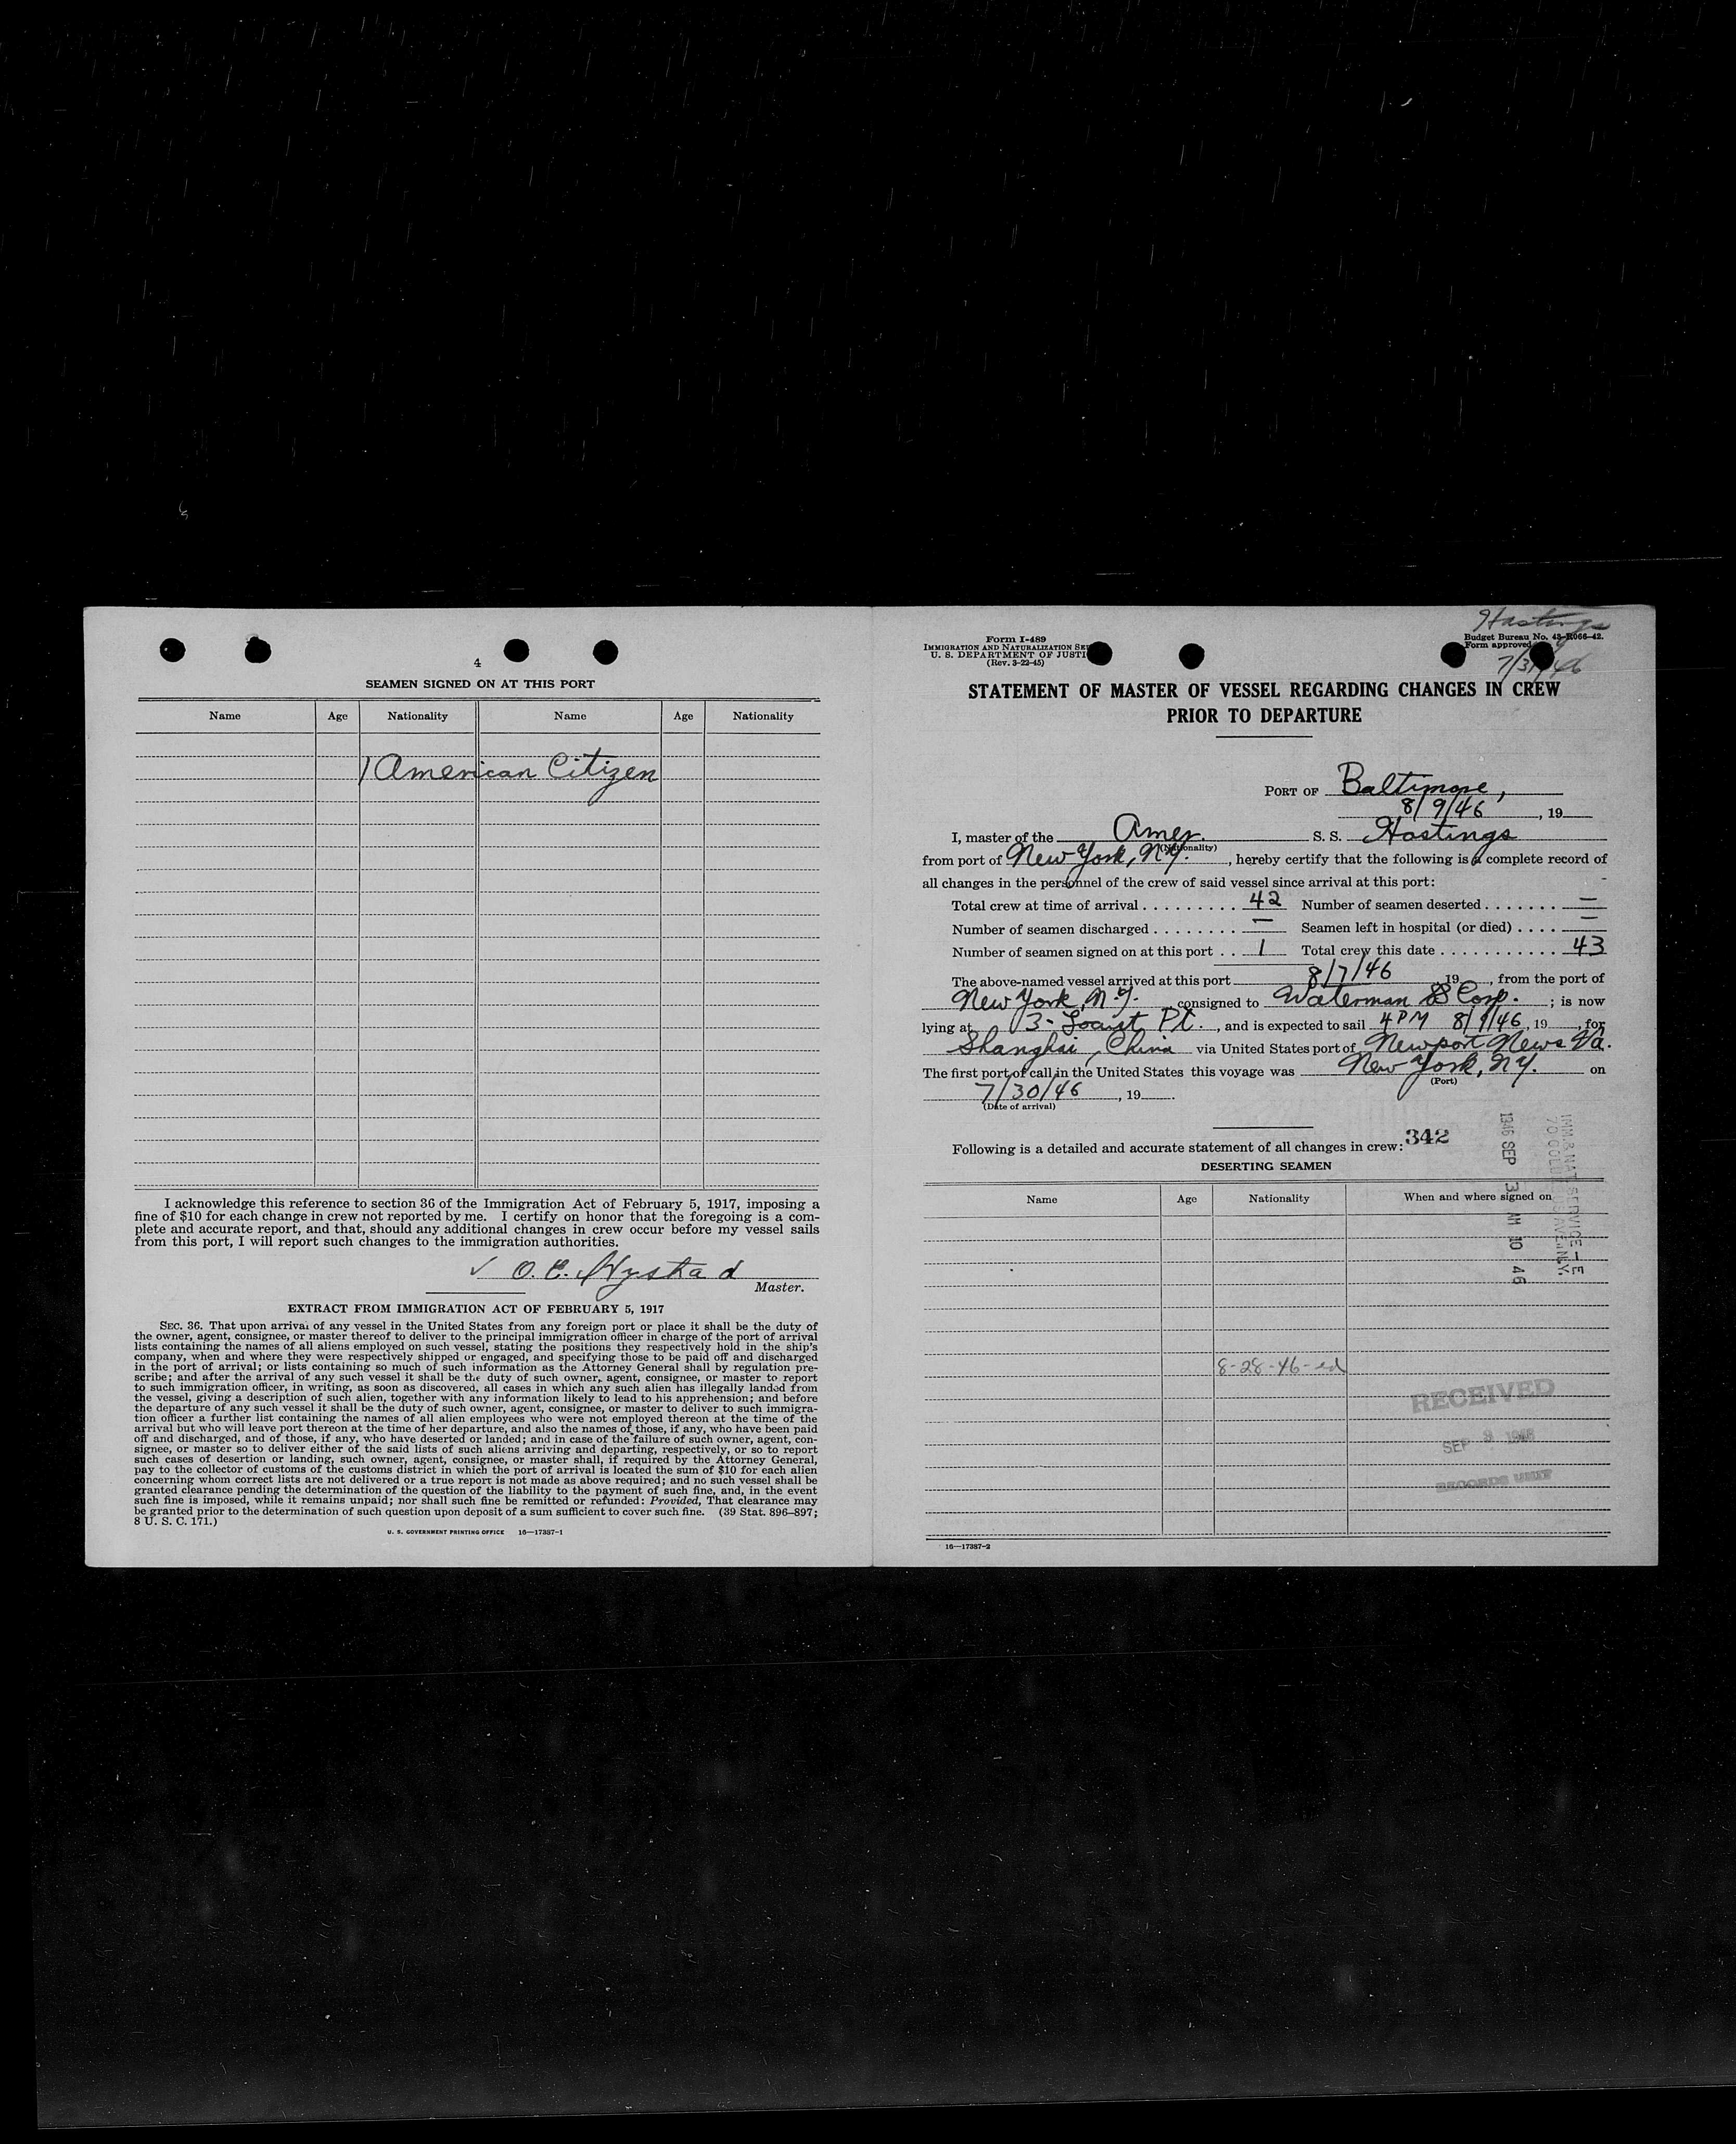 4
SEAMEN SIGNED ON AT THIS PORT
Name Age Nationality Name Age Nationality
1 American Citizen
I acknowledge this reference to section 36 of the Immigration Act of February 5, 1917, imposing a
fine of $10 for each change in crew not reported by me. I certify on honor that the foregoing is a com-
plete and accurate report, and that, should any additional changes in crew occur before my vessel sails
from this port, I will report such changes to the immigration authorities.
✓ O. E. Nystad
Master.
EXTRACT FROM IMMIGRATION ACT OF FEBRUARY 5, 1917
SEC. 36. That upon arrival of any vessel in the United States from any foreign port or place it shall be the duty of
the owner, agent, consignee, or master thereof to deliver to the principal immigration officer in charge of the port of arrival
lists containing the names of all aliens employed on such vessel, stating the positions they respectively hold in the ship's
company, when and where they were respectively shipped or engaged, and specifying those to be paid off and discharged
in the port of arrival; or lists containing so much of such information as the Attorney General shall by regulation pre-
scribe; and after the arrival of any such vessel it shall be the duty of such owner, agent, consignee, or master to report
to such immigration officer, in writing, as soon as discovered, all cases in which any such alien has illegally landed from
the vessel, giving a description of such alien, together with any information likely to lead to his apprehension; and before
the departure of any such vessel it shall be the duty of such owner, agent, consignee, or master to deliver to such immigra-
tion officer a further list containing the names of all alien employees who were not employed thereon at the time of the
arrival but who will leave port thereon at the time of her departure, and also the names of those, if any, who have been paid
off and discharged, and of those, if any, who have deserted or landed; and in case of the failure of such owner, agent, con-
signee, or master so to deliver either of the said lists of such aliens arriving and departing, respectively, or so to report
such cases of desertion or landing, such owner, agent, consignee, or master shall, if required by the Attorney General,
pay to the collector of customs of the customs district in which the port of arrival is located the sum of $10 for each alien
concerning whom correct lists are not delivered or a true report is not made as above required; and no such vessel shall be
granted clearance pending the determination of the question of the liability to the payment of such fine, and, in the event
such fine is imposed, while it remains unpaid; nor shall such fine be remitted or refunded: Provided, That clearance may
be granted prior to the determination of such question upon deposit of a sum sufficient to cover such fine. (39 Stat. 896–897;
8 U. S. C. 171.)
U. S. GOVERNMENT PRINTING OFFICE 16—17387-1
Hastings
Form I-489
IMMIGRATION AND NATURALIZATION SE
U. S. DEPARTMENT OF JUSTI
(Rev. 3-22-45)
Budget Bureau No. 43-R066-42.
Form approved
STATEMENT OF MASTER OF VESSEL REGARDING CHANGES IN CREW
PRIOR TO DEPARTURE
PORT OF Baltimore,
8/9/46, 19
I, master of the Amer. S. S. Hastings
(Nationality)
from port of New York, N.Y., hereby certify that the following is a complete record of
all changes in the personnel of the crew of said vessel since arrival at this port:
Total crew at time of arrival 42 Number of seamen deserted —
Number of seamen discharged — Seamen left in hospital (or died) —
Number of seamen signed on at this port 1 Total crew this date 43
The above-named vessel arrived at this port 8/7/46 19, from the port of
New York, N.Y., consigned to Waterman SS Corp.; is now
lying at 3- Locust Pt., and is expected to sail 4 PM 8/9/46, 19, for
Shanghai, China via United States port of Newport News Va.
The first port of call in the United States this voyage was New York, N.Y. on
(Port)
7/30/46, 19.
(Date of arrival)
Following is a detailed and accurate statement of all changes in crew: 342
DESERTING SEAMEN
Name Age Nationality When and where signed on
1946 SEP 3 AM 10 46
8-28-46-ed
RECEIVED
SEP 3 1946
RECORDS UNIT
16—17387-2